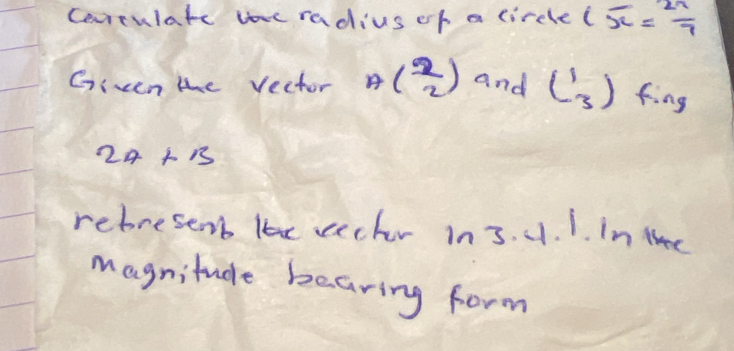 Carculate the radius of a circle ( π = 22/7
Given the vector A (2 2) and (1 3) fing
2A + B
retresent the vector in 3.4.1. In the
Magnitude bearing form